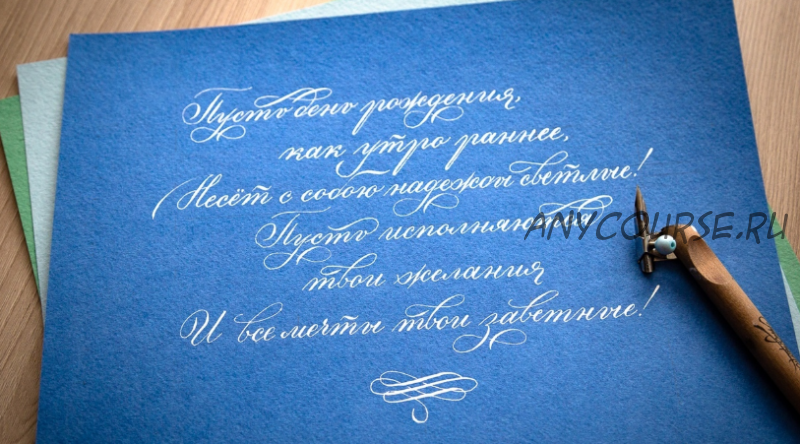 Пусть день рождения,
как утро раннее,
Несёт с собою надежды светлые!
Пусть исполняются
твои желания
И все мечты твои заветные!
ANYCOURSE.RU